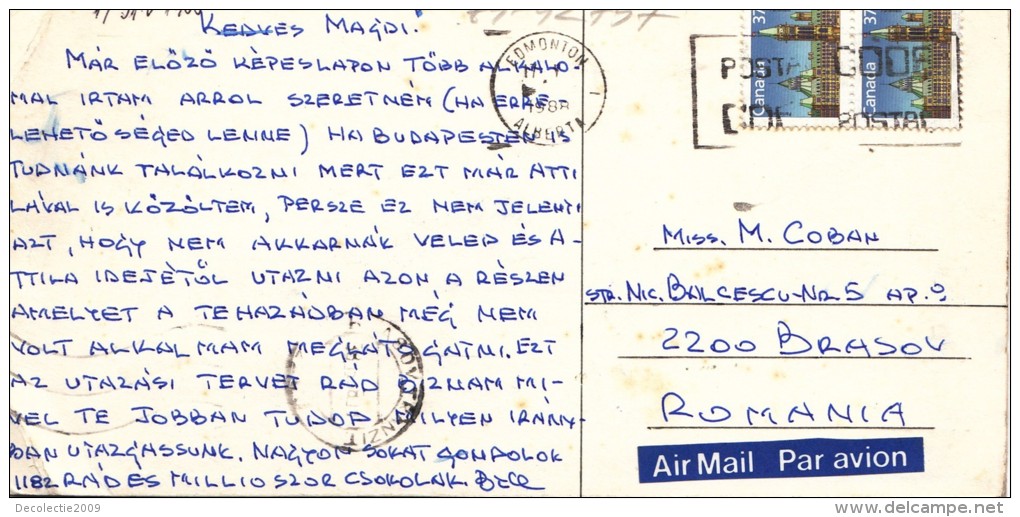 KEDVES MAGDI!
MÁR ELŐZŐ KÉPESLAPON TÖBB ALKALO-
MAL IRTAM ARROL SZERETNÉM (HA ERRE
LEHETŐSÉGED LENNE) HA BUDAPESTEN IS
TUDNÁNK TALÁLKOZNI MERT EZT MÁR ATTI
LÁVAL IS KÖZÖLTEM, PERSZE EZ NEM JELENTI
AZT, HOGY NEM AKKARNÁK VELED ÉS A-
TTILA IDEJÉTŐL UTAZNI AZON A RÉSZEN
AMELYET A TE HAZÁDBAN MÉG NEM
VOLT ALKALMAM MEGLÁTOGATNI. EZT
AZ UTAZÁSI TERVET RÁD BIZNAM MI-
VEL TE JOBBAN TUDOD MILYEN IRÁNY-
BAN UTAZGASSUNK. NAGYON SOKAT GONDOLOK
1182 RÁD ES MILLIOSZOR CSOKOLAK
EDMONTON
1988
ALBERTA
37
Canada
37
Canada
CODE
POSTAL
MISS. M. COBAN
STR. NIC. BALCESCU-NR. 5 AP. 9
2200 BRASOV
ROMANIA
Air Mail Par avion
Decolectie2009
www.delcampe.net